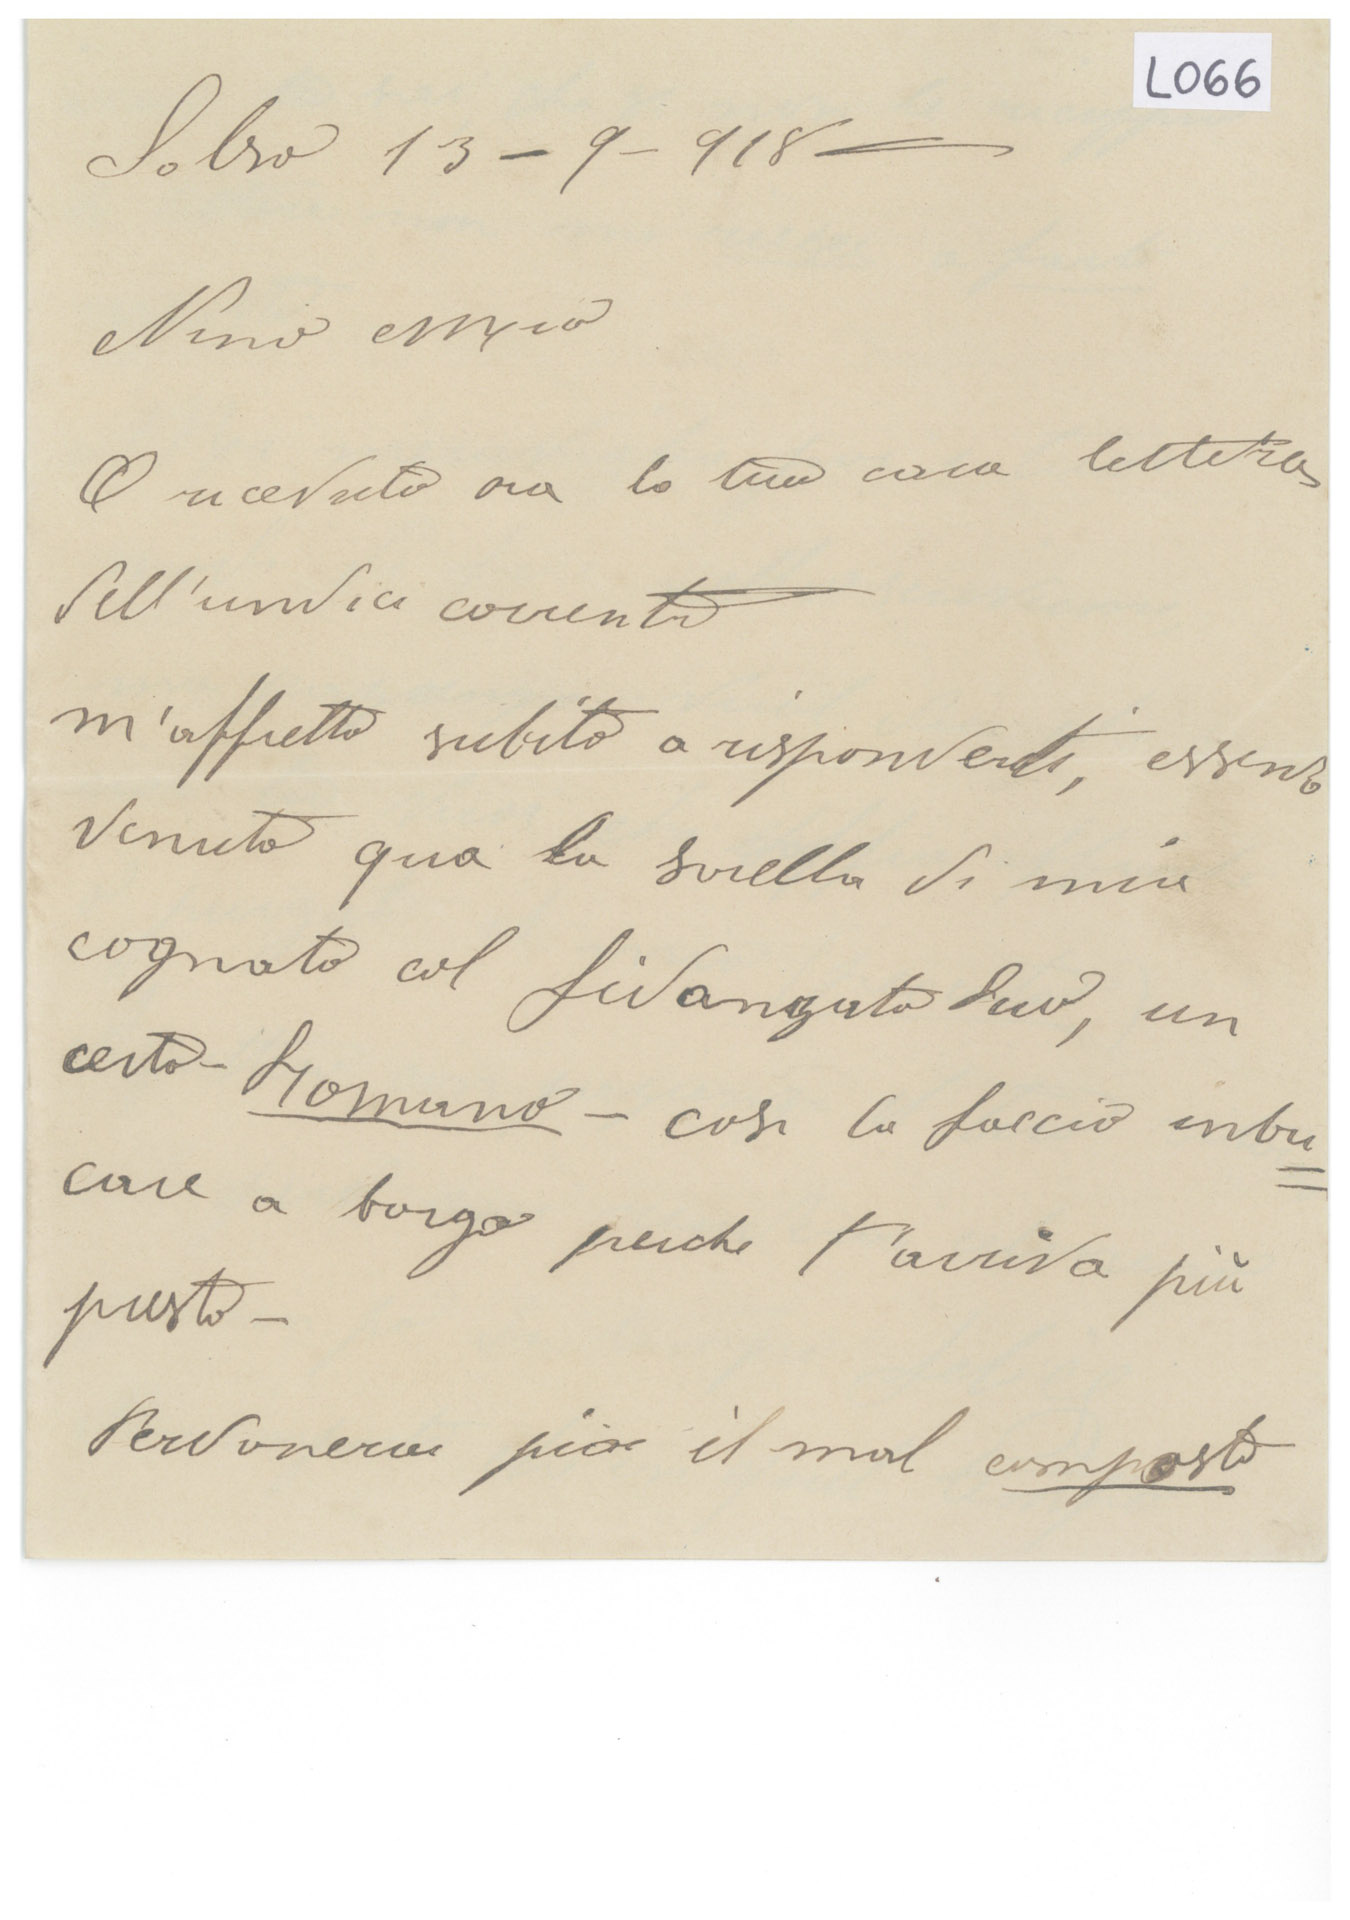 L066
Solro 13-9-918
Nino Mio
O ricevuto ora la tua cara lettera
dell'undici corrente
m'affretto subito a risponderti, essendo
venuta qua la sorella di mio
cognato col fidanzato suo, un
certo- Romano - cosi la faccio inbu=
care a borgo perche t'arriva più
presto-
Perdonerai poi il mal composto